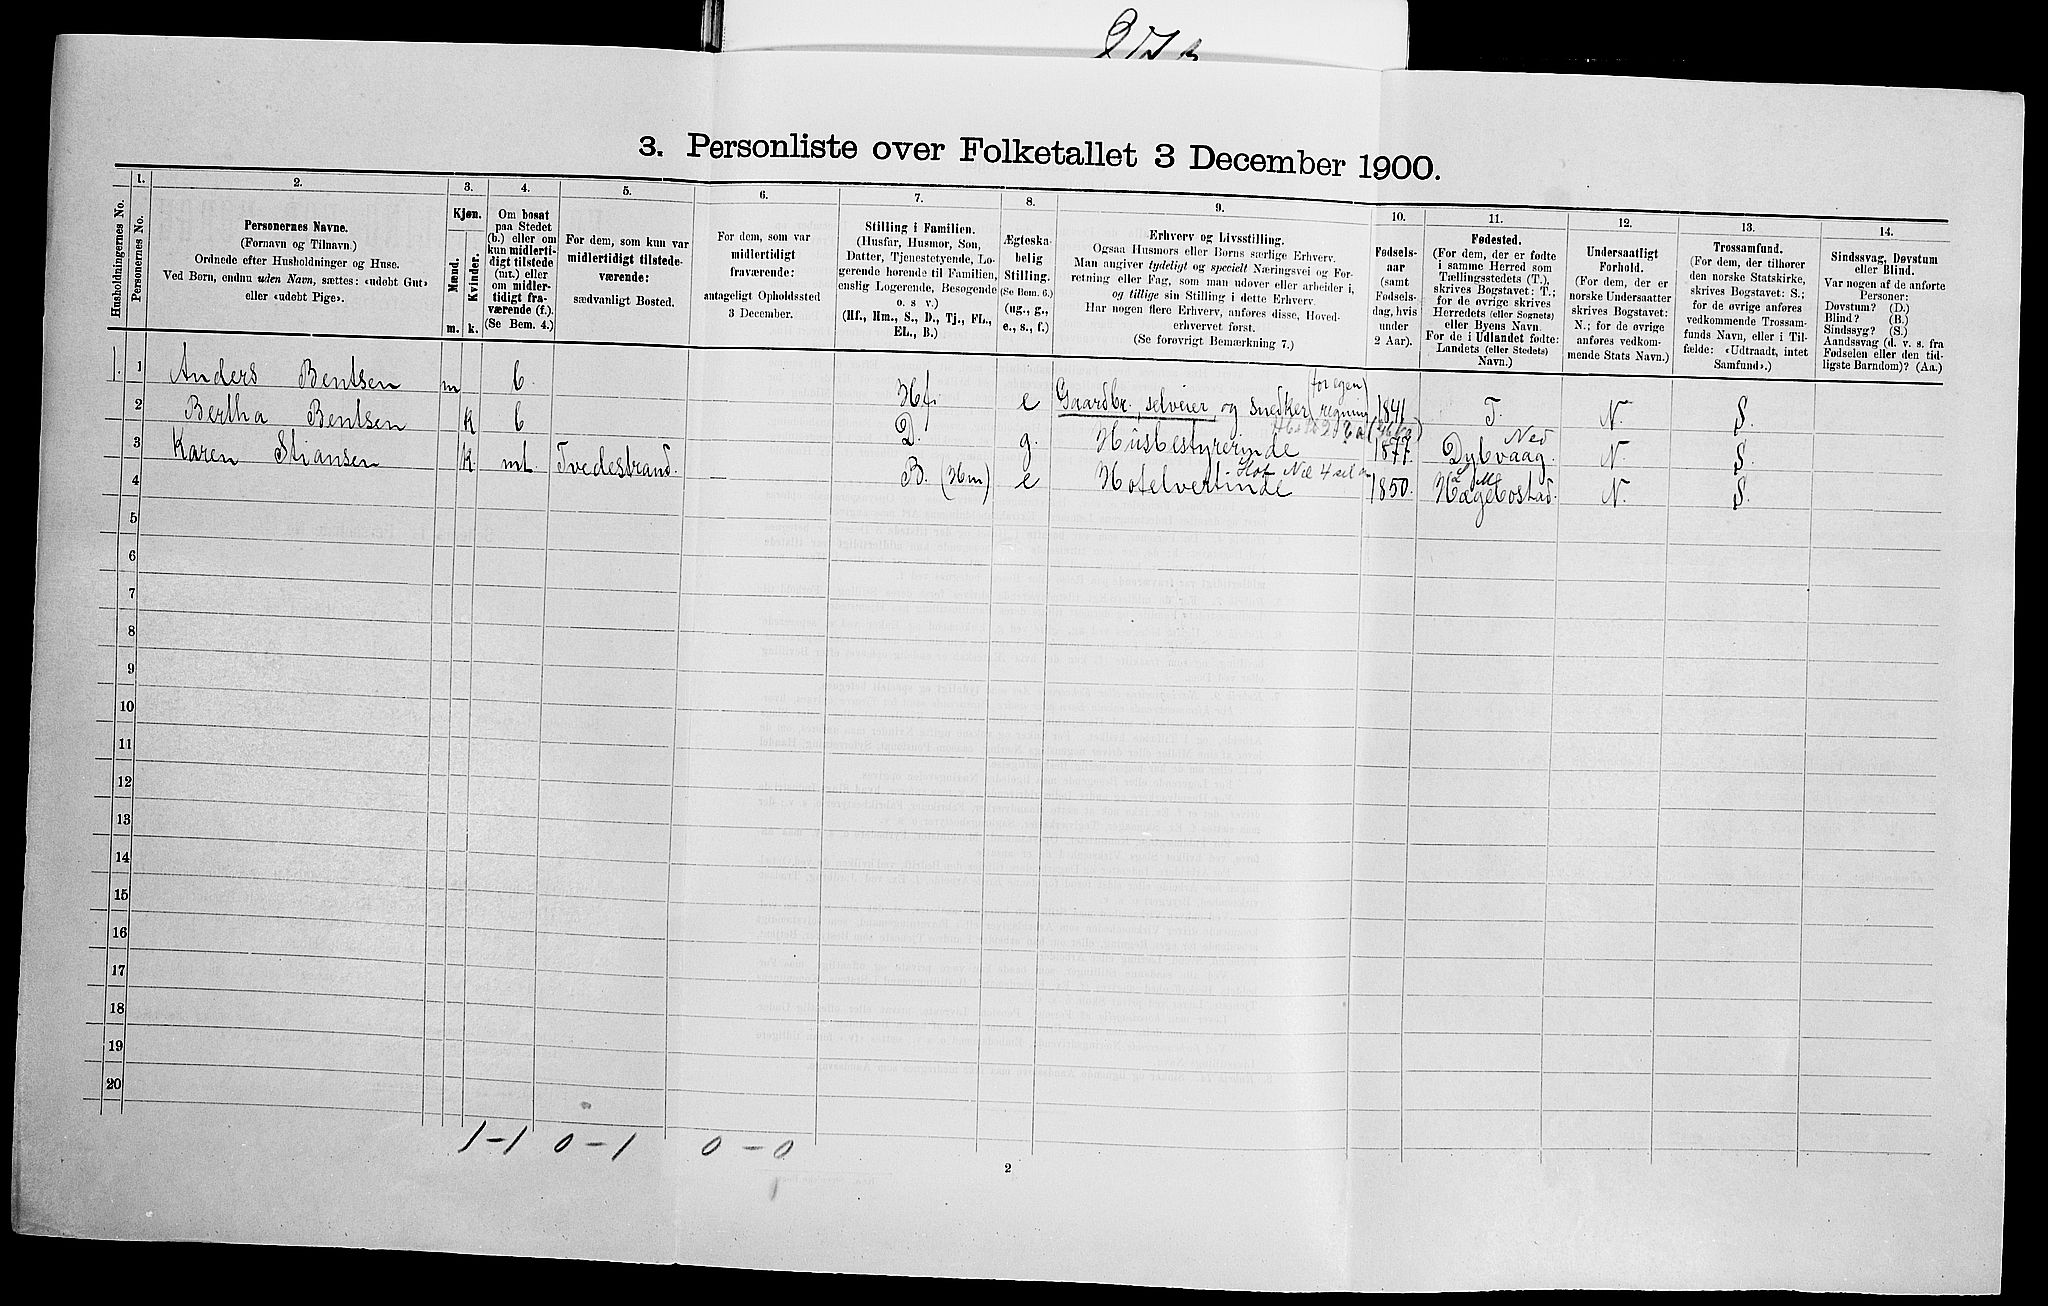 3. Personliste over Folketallet 3 December 1900.
Husholdningernes No.
1.
Personernes No.
2.
Personernes Navne.
(Fornavn og Tilnavn.)
Ordnede efter Husholdninger og Huse.
Ved Børn, endnu uden Navn, sættes: «udøbt Gut»
eller «udøbt Pige».
3.
Kjøn.
Mænd.
Kvinder.
m.
k.
4.
Om bosat
paa Stedet
(b.) eller om
kun midlerti-
digt tilstede
(mt.) eller
om midler-
tidigt fra-
værende (f.).
(Se Bem. 4.)
5.
For dem, som kun var
midlertidigt tilstede-
værende:
sædvanligt Bosted.
6.
For dem, som var
midlertidigt
fraværende:
antageligt Opholdssted
3 December.
7.
Stilling i Familien.
(Husfar, Husmor, Søn,
Datter, Tjenestetyende, Lo-
gerende hørende til Familien,
enslig Logerende, Besøgende
o. s v.)
(Hf., Hm., S., D., Tj., FL.,
EL., B.)
8.
Ægteska-
belig
Stilling.
(Se Bem. 6.)
(ug., g.,
e., s., f.)
9.
Erhverv og Livsstilling.
Ogsaa Husmors eller Børns særlige Erhverv.
Man angiver tydeligt og specielt Næringsvei og For-
retning eller Fag, som man udøver eller arbeider i,
og tillige sin Stilling i dette Erhverv.
Har nogen flere Erhverv, anføres disse, Hoved-
erhvervet først.
(Se forøvrigt Bemærkning 7.)
10.
Fødsels-
aar
(samt
Fødsels-
dag, hvis
under
2 Aar).
11.
Fødested.
(For dem, der er fødte
i samme Herred som
Tællingsstedets (T.),
skrives Bogstavet: T.;
for de øvrige skrives
Herredets (eller Sognets)
eller Byens Navn.
For de i Udlandet fødte:
Landets (eller Stedets)
Navn.)
12.
Undersaatligt
Forhold.
(For dem, der er
norske Undersaatter
skrives Bogstavet:
N.; for de øvrige
anføres vedkom-
mende Stats Navn.)
13.
Trossamfund.
(For dem, der tilhører
den norske Statskirke,
skrives Bogstavet: S.;
for de øvrige anføres
vedkommende Trossam-
funds Navn, eller i Til-
fælde: «Udtraadt, intet
Samfund».)
14.
Sindssvag, Døvstum
eller Blind.
Var nogen af de anførte
Personer:
Døvstum? (D.)
Blind? (B.)
Sindssyg? (S.)
Aandssvag (d. v. s. fra
Fødselen eller den tid-
ligste Barndom)? (Aa.)
1. 1 Anders Bentsen m b. Hf. e Gaardbr., selveier, og snedker (for egen regning) 1841 T. N. S.
2 Bertha Bentsen k b D. g. Husbestyrerinde 1877. Dybvaag. Ned N. S.
3 Karen Stiansen k. mt. Tvedestrand. — B. (Hm) e Hotelvertinde 1850. Hægebostad. N. S.
4
5
6
7
8
9
10
11
12
13
14
15
16
17
18
19
20
1-1 0-1 0-0
2